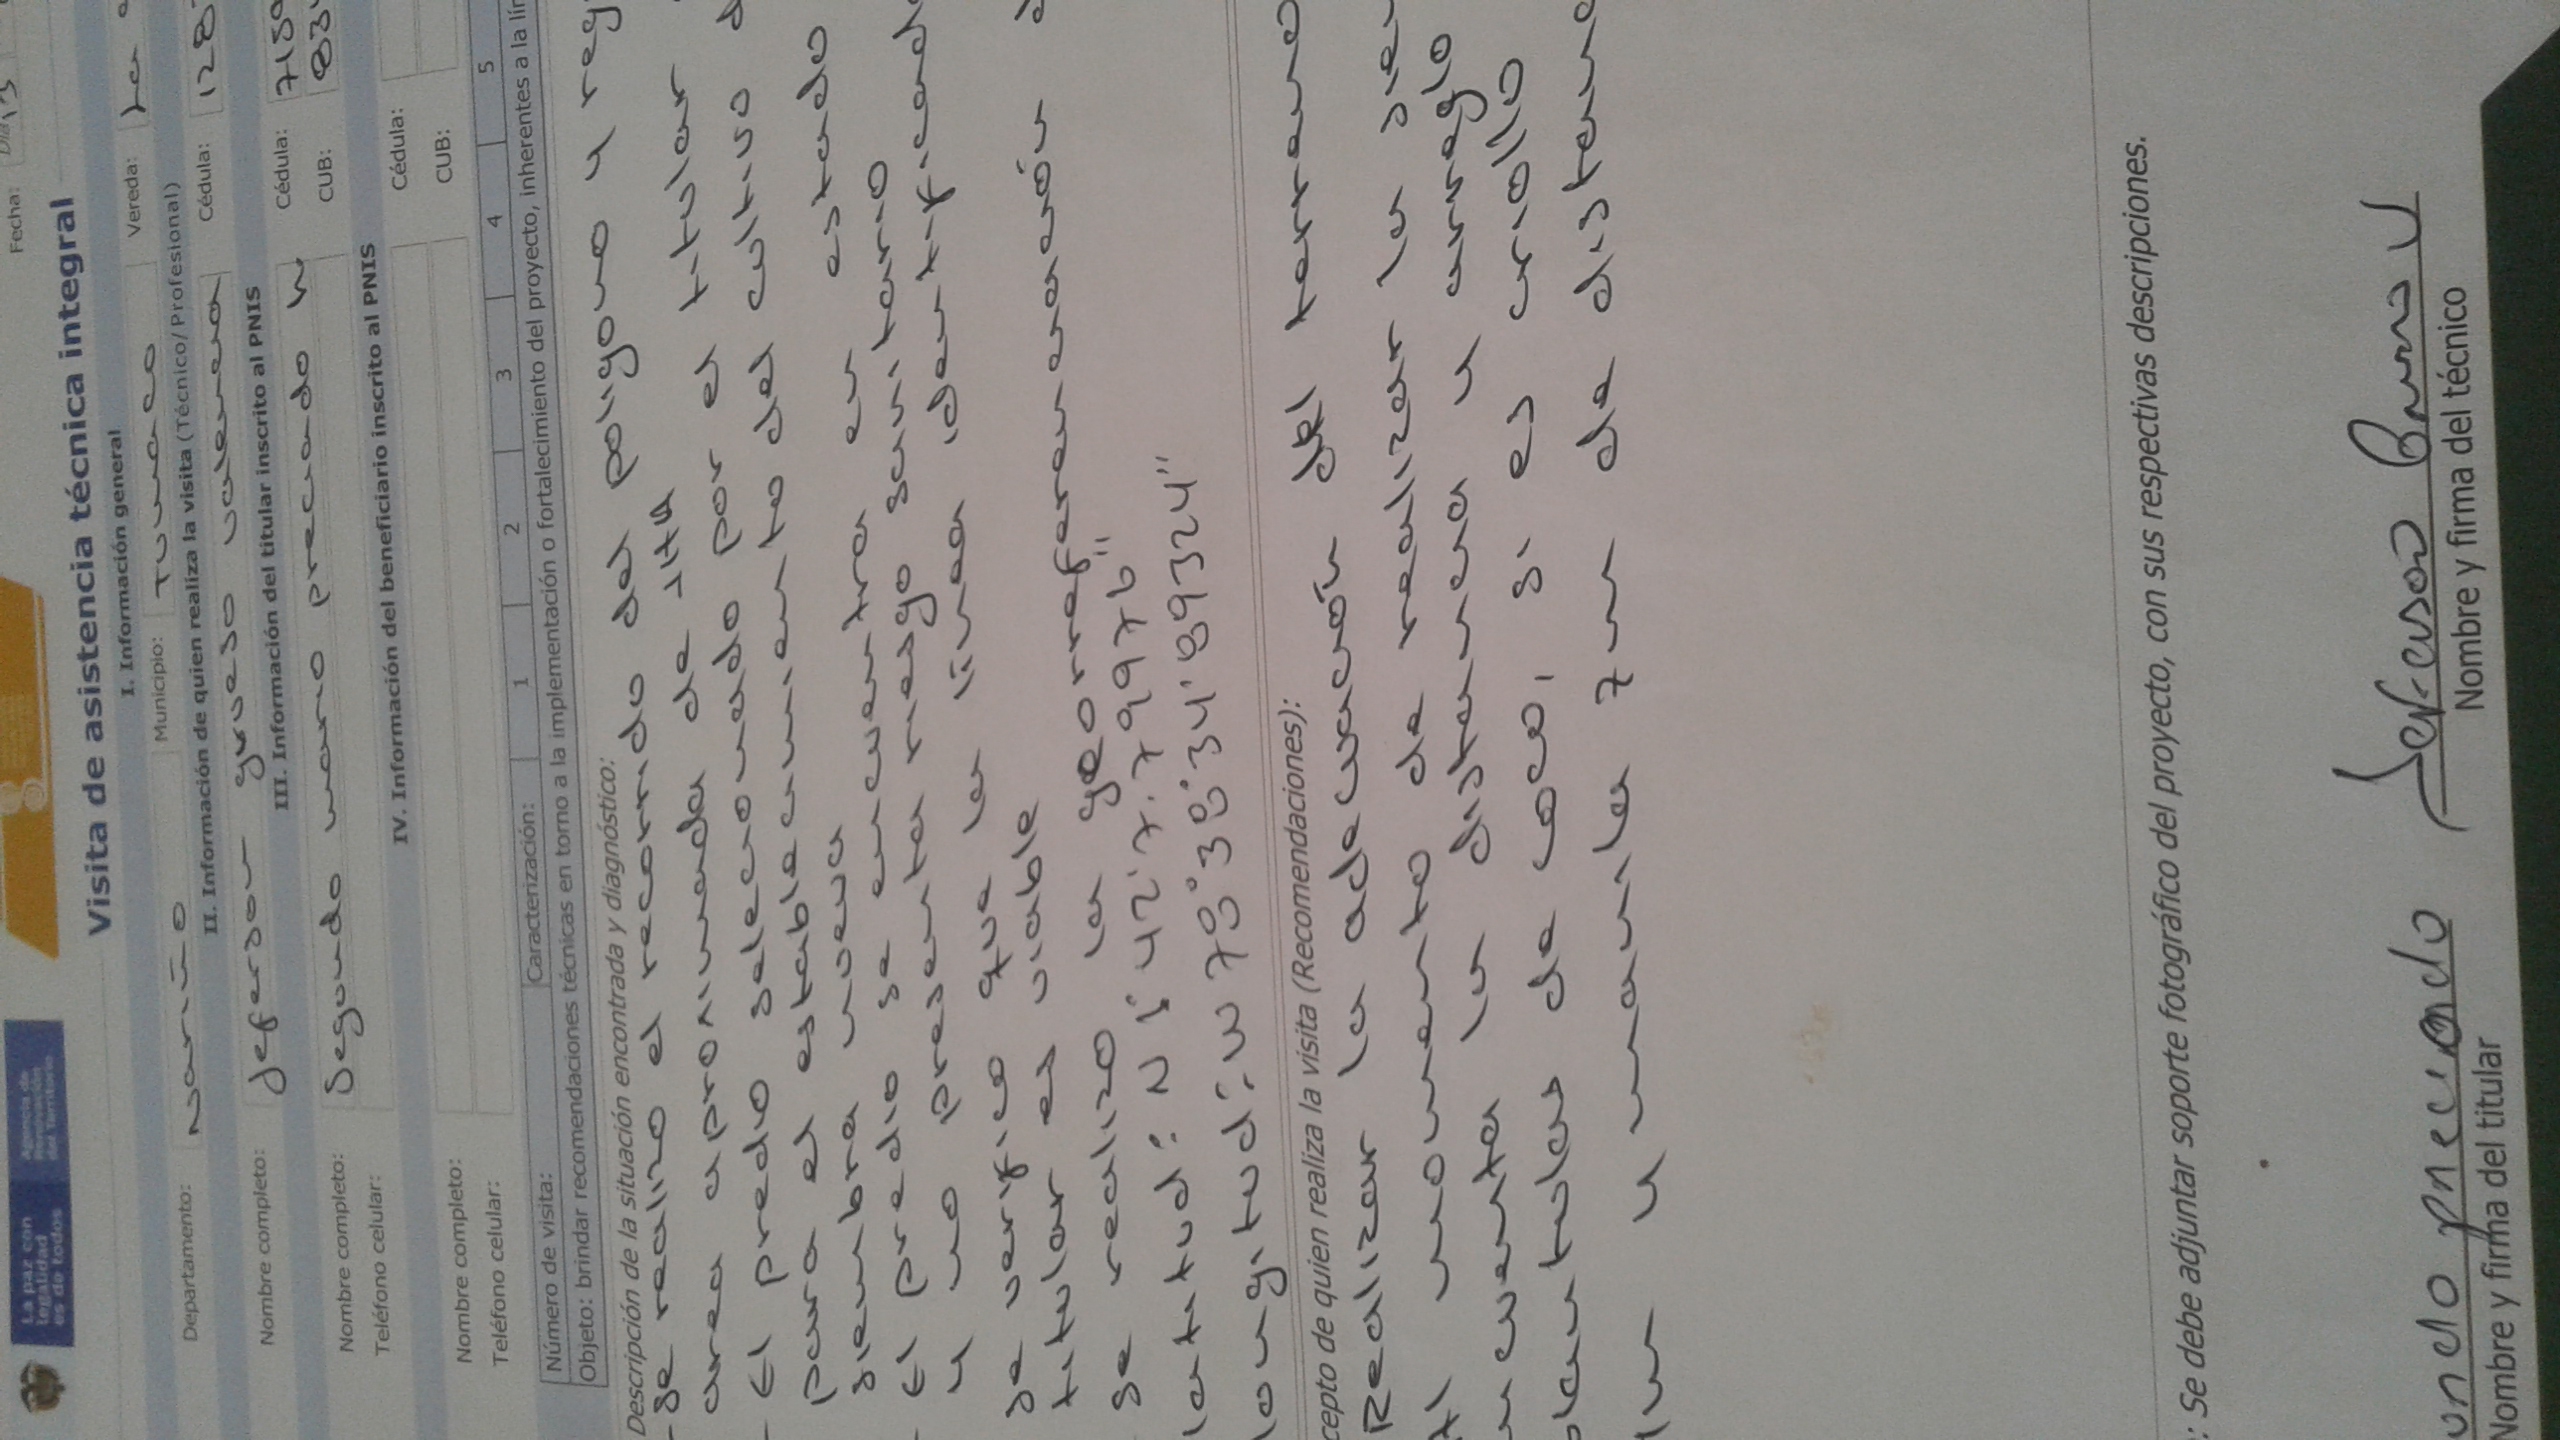 La paz con
legalidad
es de todos
Agencia de
Renovación
del Territorio
Fecha:
Día 13
Visita de asistencia técnica integral
I. Información general
Departamento: Nariño Municipio: Tumaco Vereda:
II. Información de quien realiza la visita (Técnico/Profesional)
Nombre completo: Jeferson grueso valencia Cédula: 128
III. Información del titular inscrito al PNIS
Nombre completo: Segundo mario preciado Cédula: 7150
Teléfono celular: CUB: 834
IV. Información del beneficiario inscrito al PNIS
Nombre completo: Cédula:
Teléfono celular: CUB:
Número de visita: Caracterización: 1 2 3 4 5
Objeto: brindar recomendaciones técnicas en torno a la implementación o fortalecimiento del proyecto, inherentes a la lín
Descripción de la situación encontrada y diagnóstico:
- Se realizo el recorrido del poligono y reg
area aproximada de 1HA
- El predio selecionado por el titular
para el establecimiento del cultivo d
siembra nueva
- El predio se encuentra en estado
y no presenta riesgo sanitario
se verifico que la linea identificad
titular es viable
- Se realizo la georreferenciación d
latitud: N 1° 42' 7.79976"
longitud: W 78° 38' 34'89324"
cepto de quien realiza la visita (Recomendaciones):
Realizar la adecuación del terreno
Al momento de realizar la sie
n cuenta la distancia y arreglo
plantulas de coco, si es criollo
y manila 7m de distanc
: Se debe adjuntar soporte fotográfico del proyecto, con sus respectivas descripciones.
undo preciado
Nombre y firma del titular
Jeferson
Nombre y firma del técnico